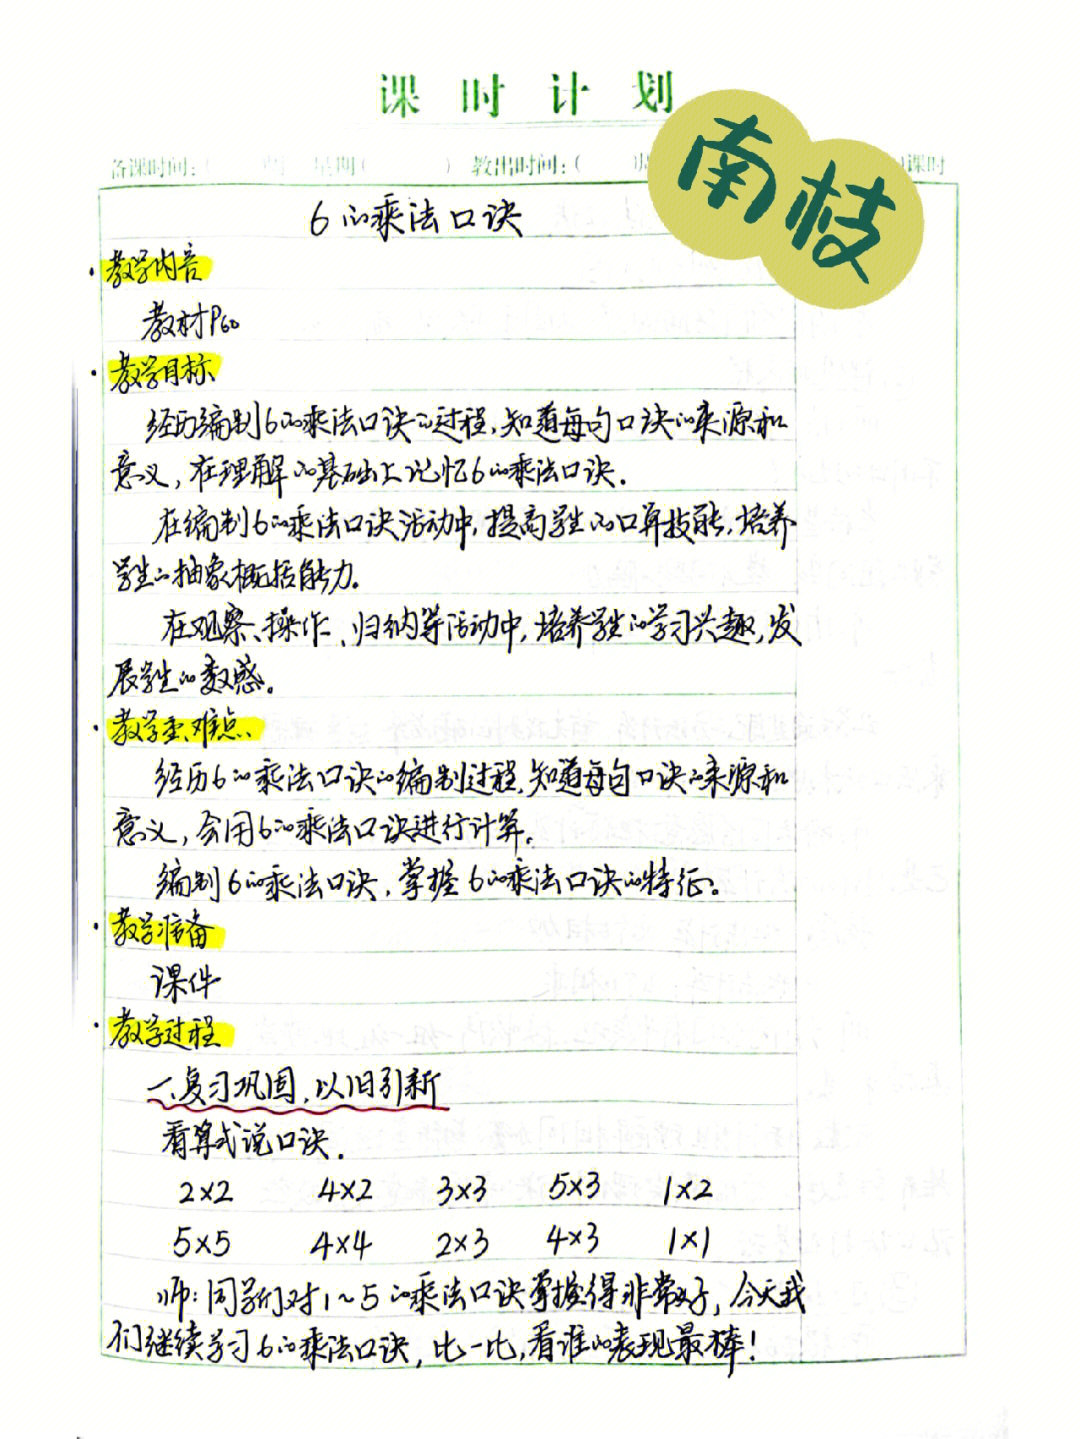 课时计划
南枝
备课时间：（ 周 星期（ ） 教出时间：（ ）周 ）课时
6的乘法口诀
·教学内容
教材P60
·教学目标
经历编制6的乘法口诀的过程，知道每句口诀的来源和
意义，在理解的基础上记忆6的乘法口诀.
在编制6的乘法口诀活动中，提高学生的口算技能，培养
学生的抽象概括能力.
在观察、操作、归纳等活动中，培养学生的学习兴趣，发
展学生的数感。
·教学重、难点、
经历6的乘法口诀的编制过程，知道每句口诀的来源和
意义，会用6的乘法口诀进行计算。
编制6的乘法口诀，掌握6的乘法口诀的特征。
·教学准备
课件
·教学过程
一、复习巩固，以旧引新
看算式说口诀.
2×2 4×2 3×3 5×3 1×2
5×5 4×4 2×3 4×3 1×1
师：同学们对1~5的乘法口诀掌握得非常好，今天我
们继续学习6的乘法口诀，比一比，看谁的表现最棒！